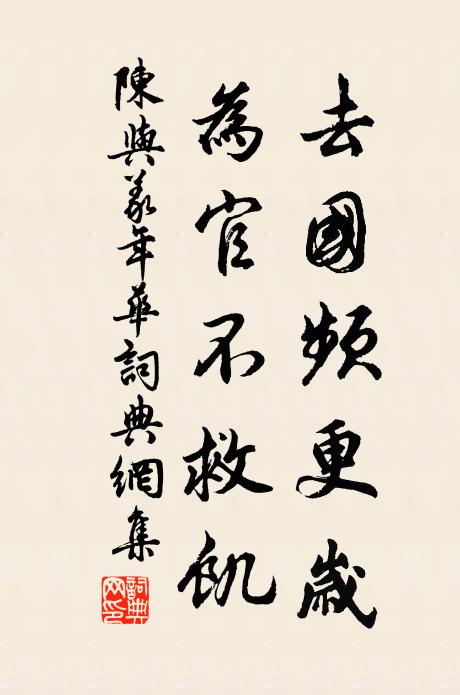 去國頻更歲
為官不救飢
陳與義年華詞典網集
詞典网印